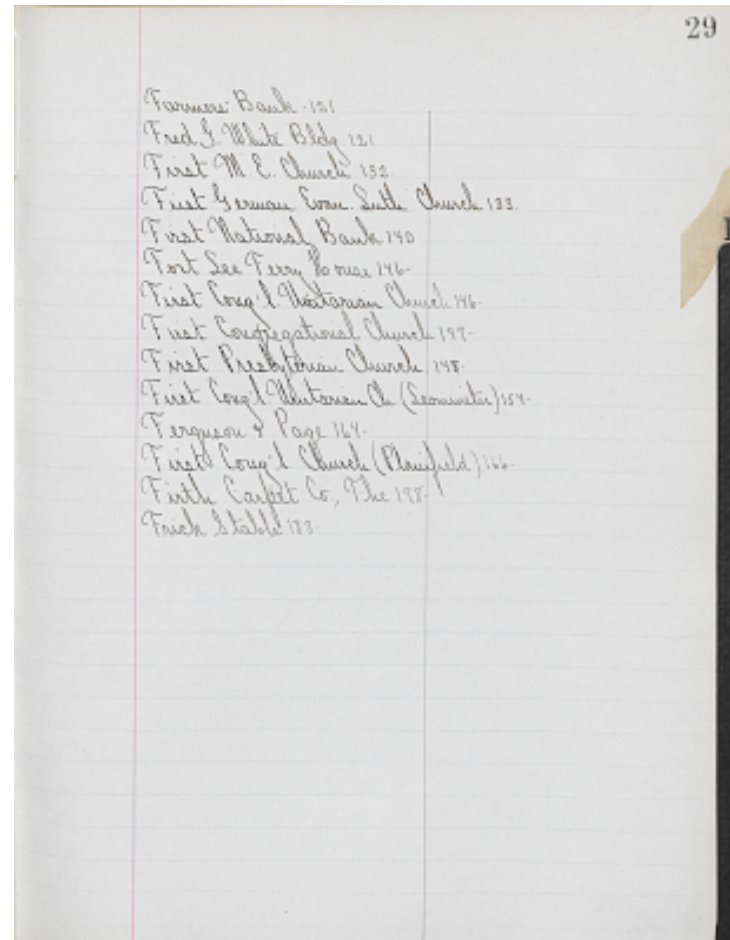 29
Farmers' Bank - 121
Fred F. White Bldg. 121
First M. E. Church 132.
First German Evan. Luth. Church 133.
First National Bank 140
Fort Lee Ferry House 146-
First Cong'l Unitarian Church 146-
First Congregational Church 147-
First Presbyterian Church 148-
First Cong'l Unitarian Ch (Leominster) 154-
Ferguson & Page 164-
First Cong'l Church (Plainfield) 166-
Firth Carpet Co, The
Frick Stable 183-